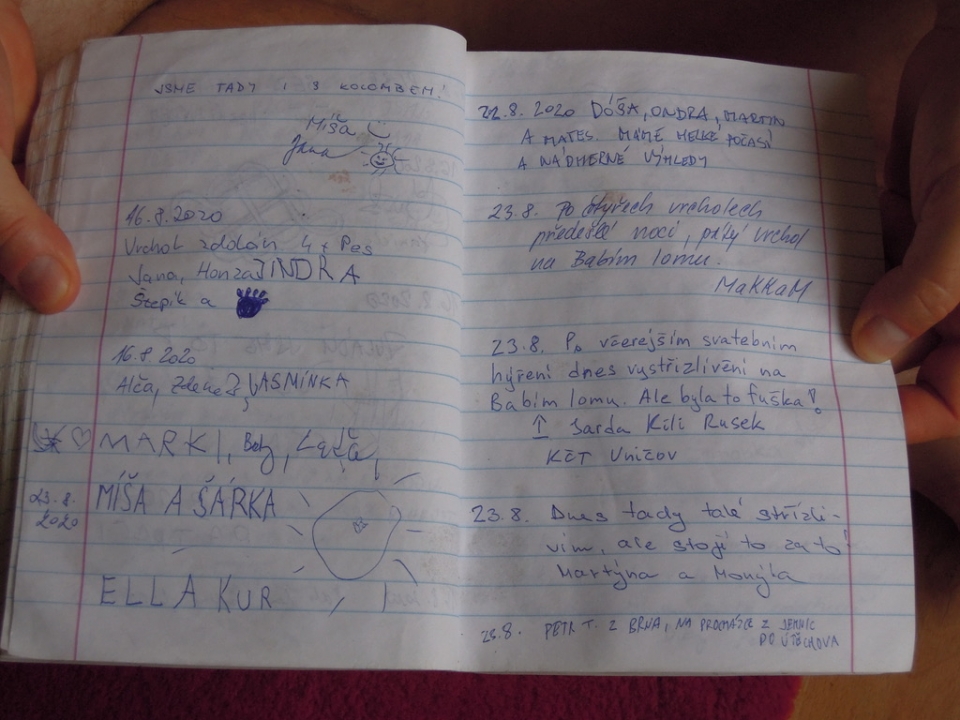 JSME TADY I S KOLOMBEM!
Míša
Jana
16.8.2020
Vrchol zdolán 4 + Pes
Jana, Honza JINDRA
Štěpík a
16.8.2020
Alča, Zdeněk, JASMÍNKA
MARKI,
23.8.
2020
MÍŠA A ŠÁRKA
ELLA KUR
22.8. 2020 DÓŠA, ONDRA, MARTIN
A MATES. MÁME HEZKÉ POČASÍ
A NÁDHERNÉ VÝHLEDY
23.8. Po čtyřech vrcholech
předešlé noci, pátý vrchol
na Babím lomu.
MaKKaM
23.8. Po včerejším svatebním
hýření dnes vystřízlivění na
Babím lomu. Ale byla to fuška!
↑ Jarda Kili Rusek
KČT Uničov
23.8. Dnes tady také střízli-
vím, ale stojí to za to!
Martýna a Monýka
23.8. PETR T. Z BRNA, NA PROCHÁZCE Z JEHNIC
DO ÚTĚCHOVA